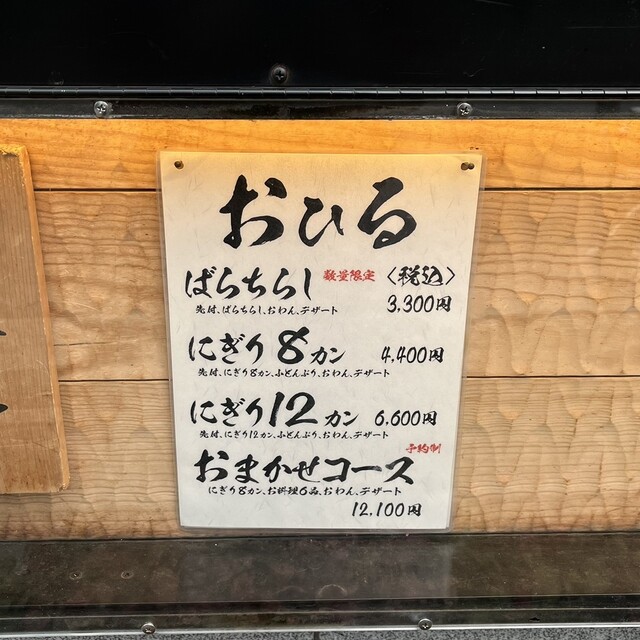 おひる
ばらちらし 数量限定 〈税込〉
先付、ばらちらし、おわん、デザート 3,300円
にぎり8カン 4,400円
先付、にぎり8カン、小どんぶり、おわん、デザート
にぎり12カン 6,600円
先付、にぎり12カン、小どんぶり、おわん、デザート
予約制
おまかせコース
にぎり8カン、お料理6品、おわん、デザート
12,100円